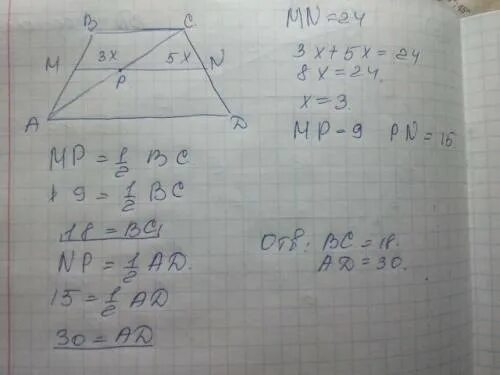 B C
M 3x 5x N
P
A D
MN = 24
3x + 5x = 24
8x = 24
x = 3.
MP - 9 PN = 15
MP = 1/2 BC
9 = 1/2 BC
18 = BC
NP = 1/2 AD.
15 = 1/2 AD
30 = AD
Отв: BC = 18.
AD = 30.